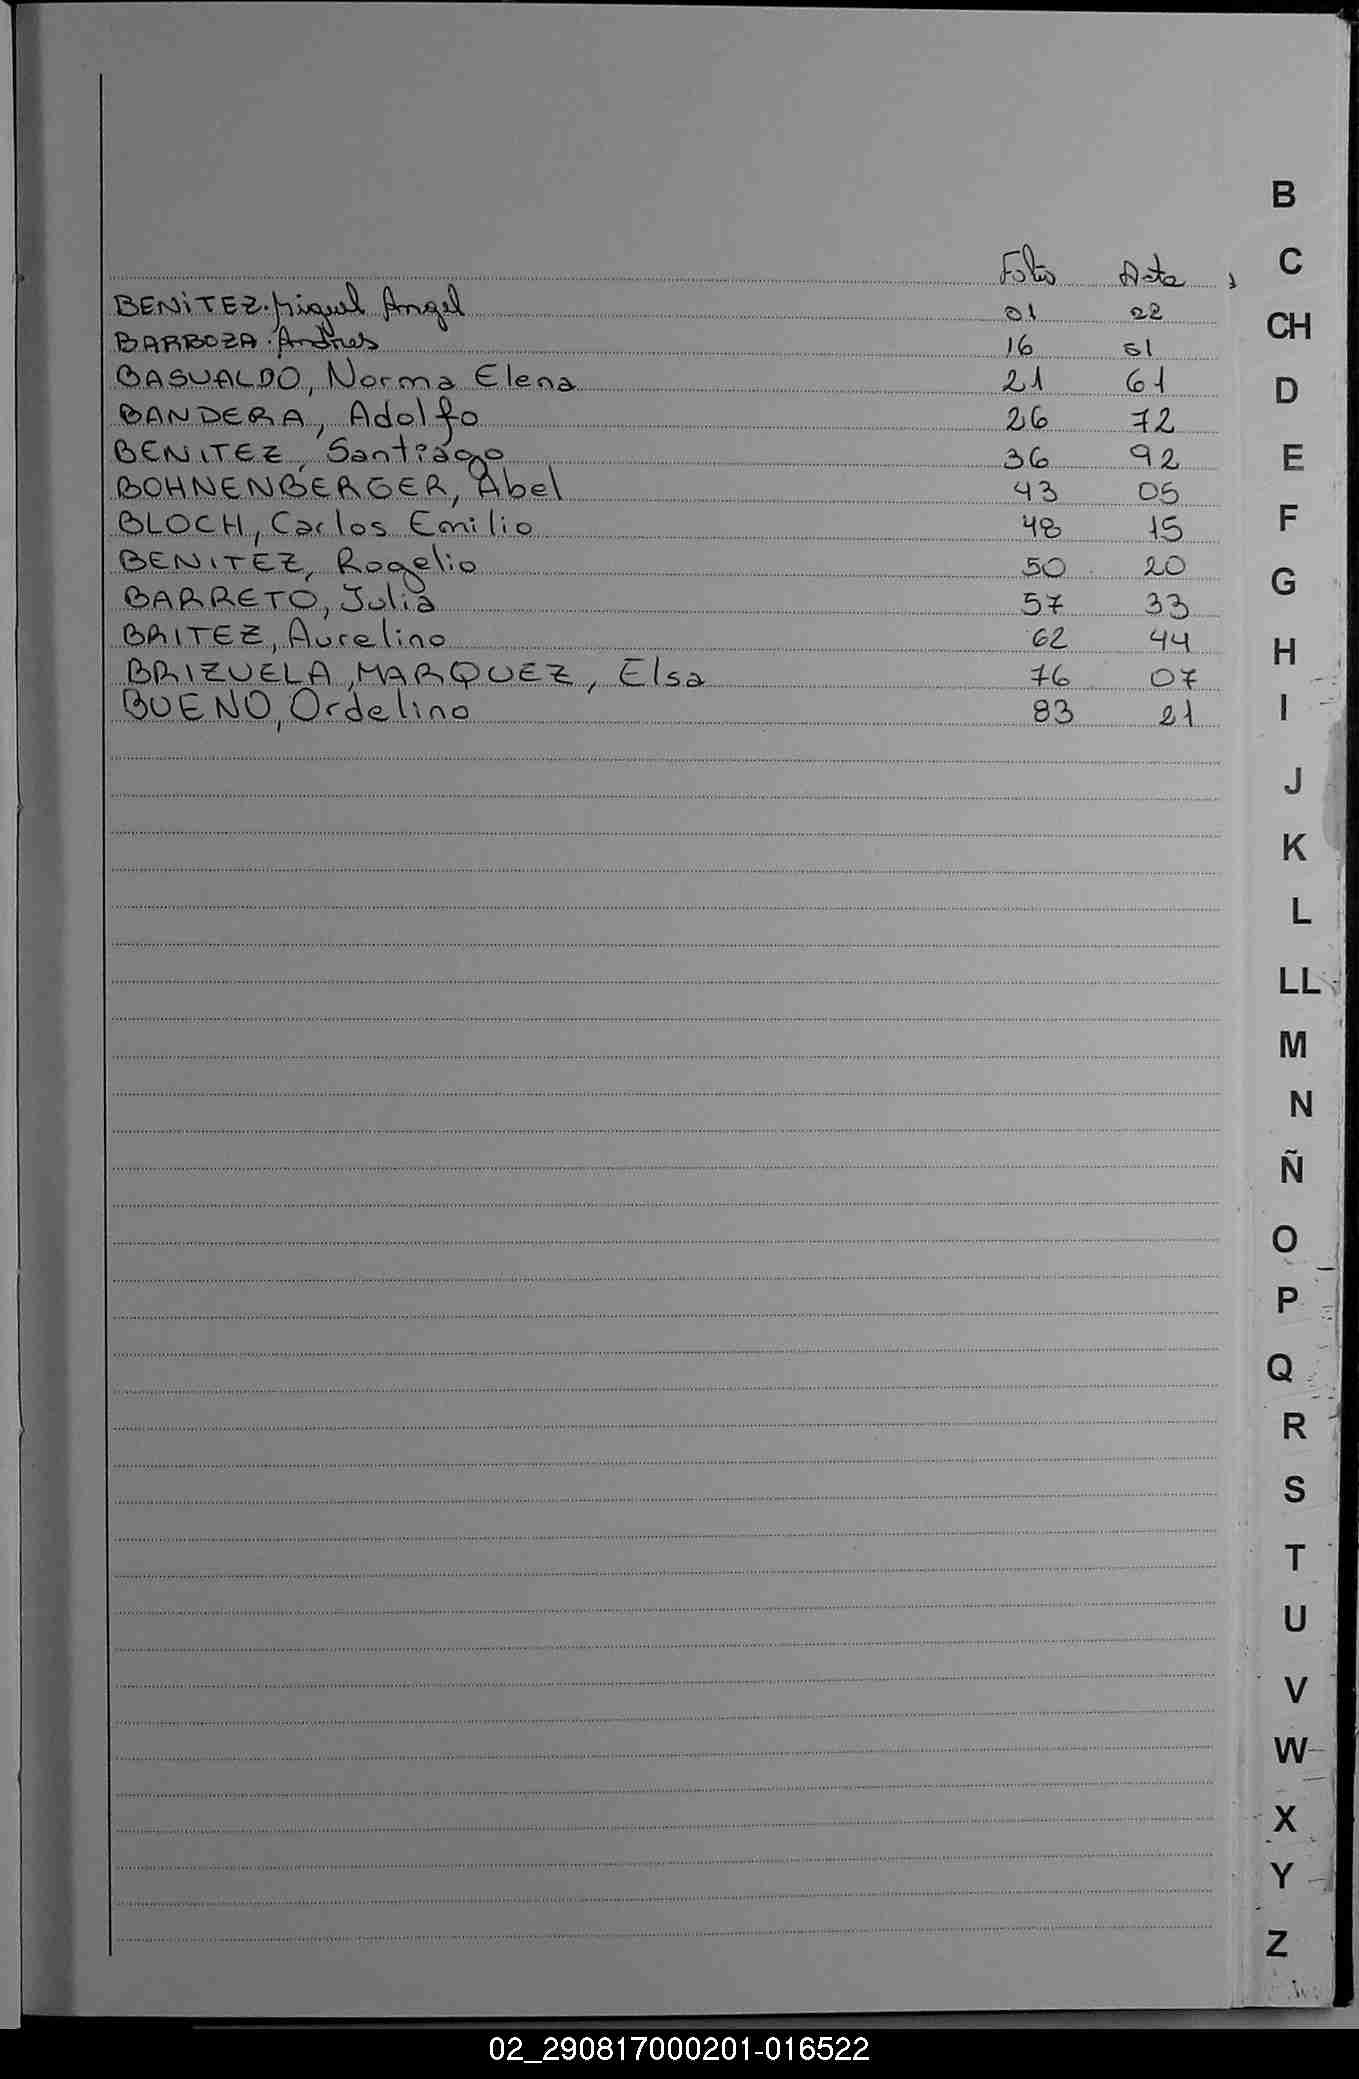 Folio Acta
BENITEZ. Miguel Angel 01 22
BARBOZA. Andres 16 51
BASUALDO, Norma Elena 21 61
BANDERA, Adolfo 26 72
BENITEZ, Santiago 36 92
BOHNENBERGER, Abel 43 05
BLOCH, Carlos Emilio 48 15
BENITEZ, Rogelio 50 20
BARRETO, Julia 57 33
BRITEZ, Aurelino 62 44
BRIZUELA, MARQUEZ, Elsa 76 07
BUENO, Ordelino 83 21
B
C
CH
D
E
F
G
H
I
J
K
L
LL
M
N
Ñ
O
P
Q
R
S
T
U
V
W
X
Y
Z
02_290817000201-016522